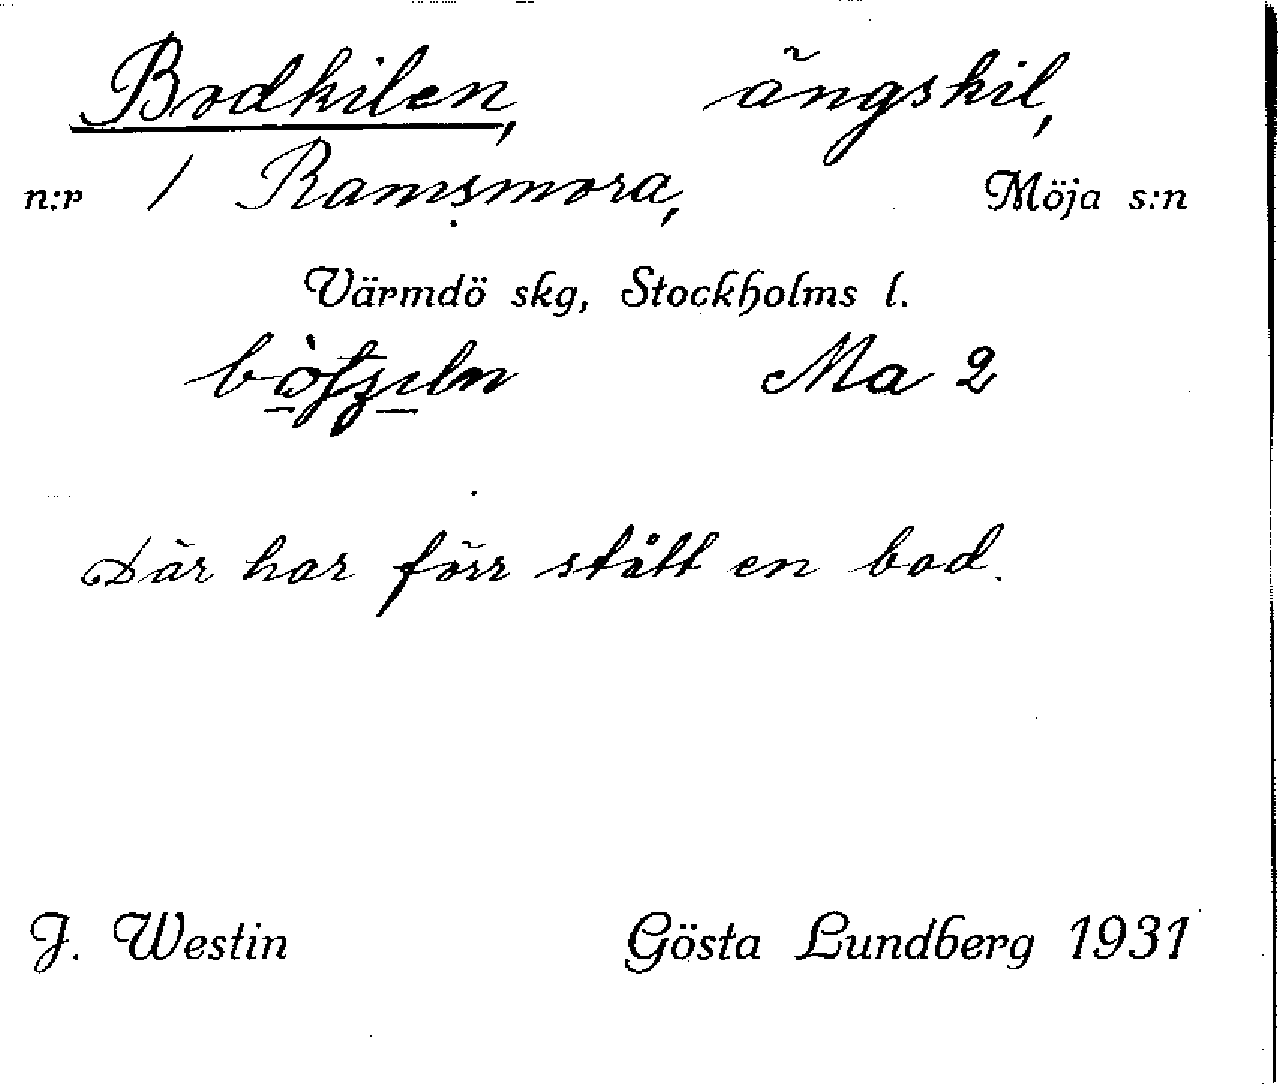 Bodkilen, ängskil,
n:r 1 Ramsmora, Möja s:n
Värmdö skg, Stockholms l.
Ma 2
Där har förr stått en bod.
J. Westin Gösta Lundberg 1931